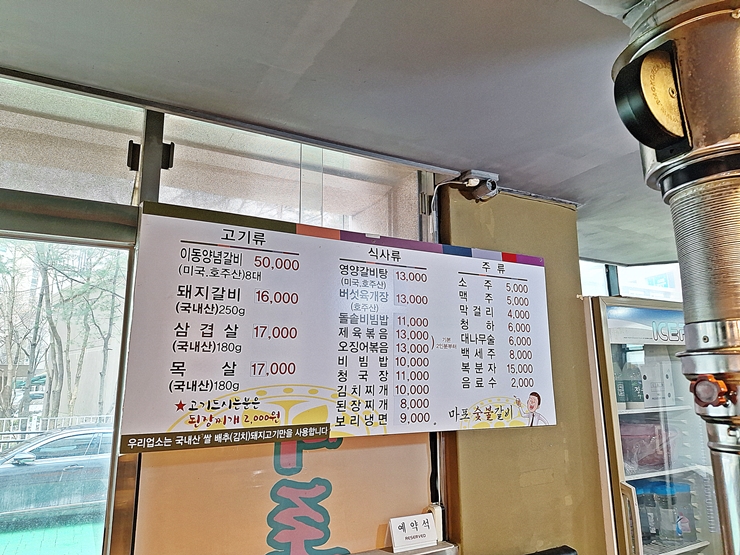 고기류
이동양념갈비 50,000
(미국,호주산)8대
돼지갈비 16,000
(국내산)250g
삼겹살 17,000
(국내산)180g
목살 17,000
(국내산)180g
★고기드시는분은
된장찌개 2,000원
식사류
영양갈비탕 13,000
(미국,호주산)
버섯육개장 13,000
(호주산)
돌솥비빔밥 11,000
제육볶음 13,000
오징어볶음 13,000
기본
2인분부터
비빔밥 10,000
청국장 11,000
김치찌개 10,000
된장찌개 8,000
보리냉면 9,000
주류
소주 5,000
맥주 5,000
막걸리 4,000
청하 6,000
대나무술 6,000
백세주 8,000
복분자 15,000
음료수 2,000
마포숯불갈비
우리업소는 국내산 쌀 배추(김치)돼지고기만을 사용합니다
예약석
RESERVED